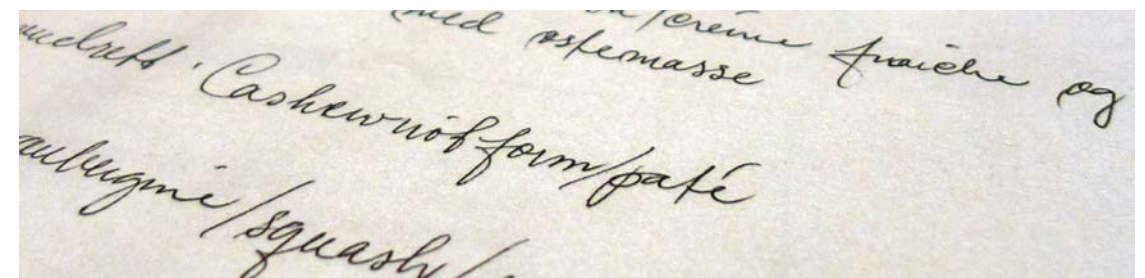 crème fraîche og
med ostemasse
Cashewnötform/paté
aubergine/squash/